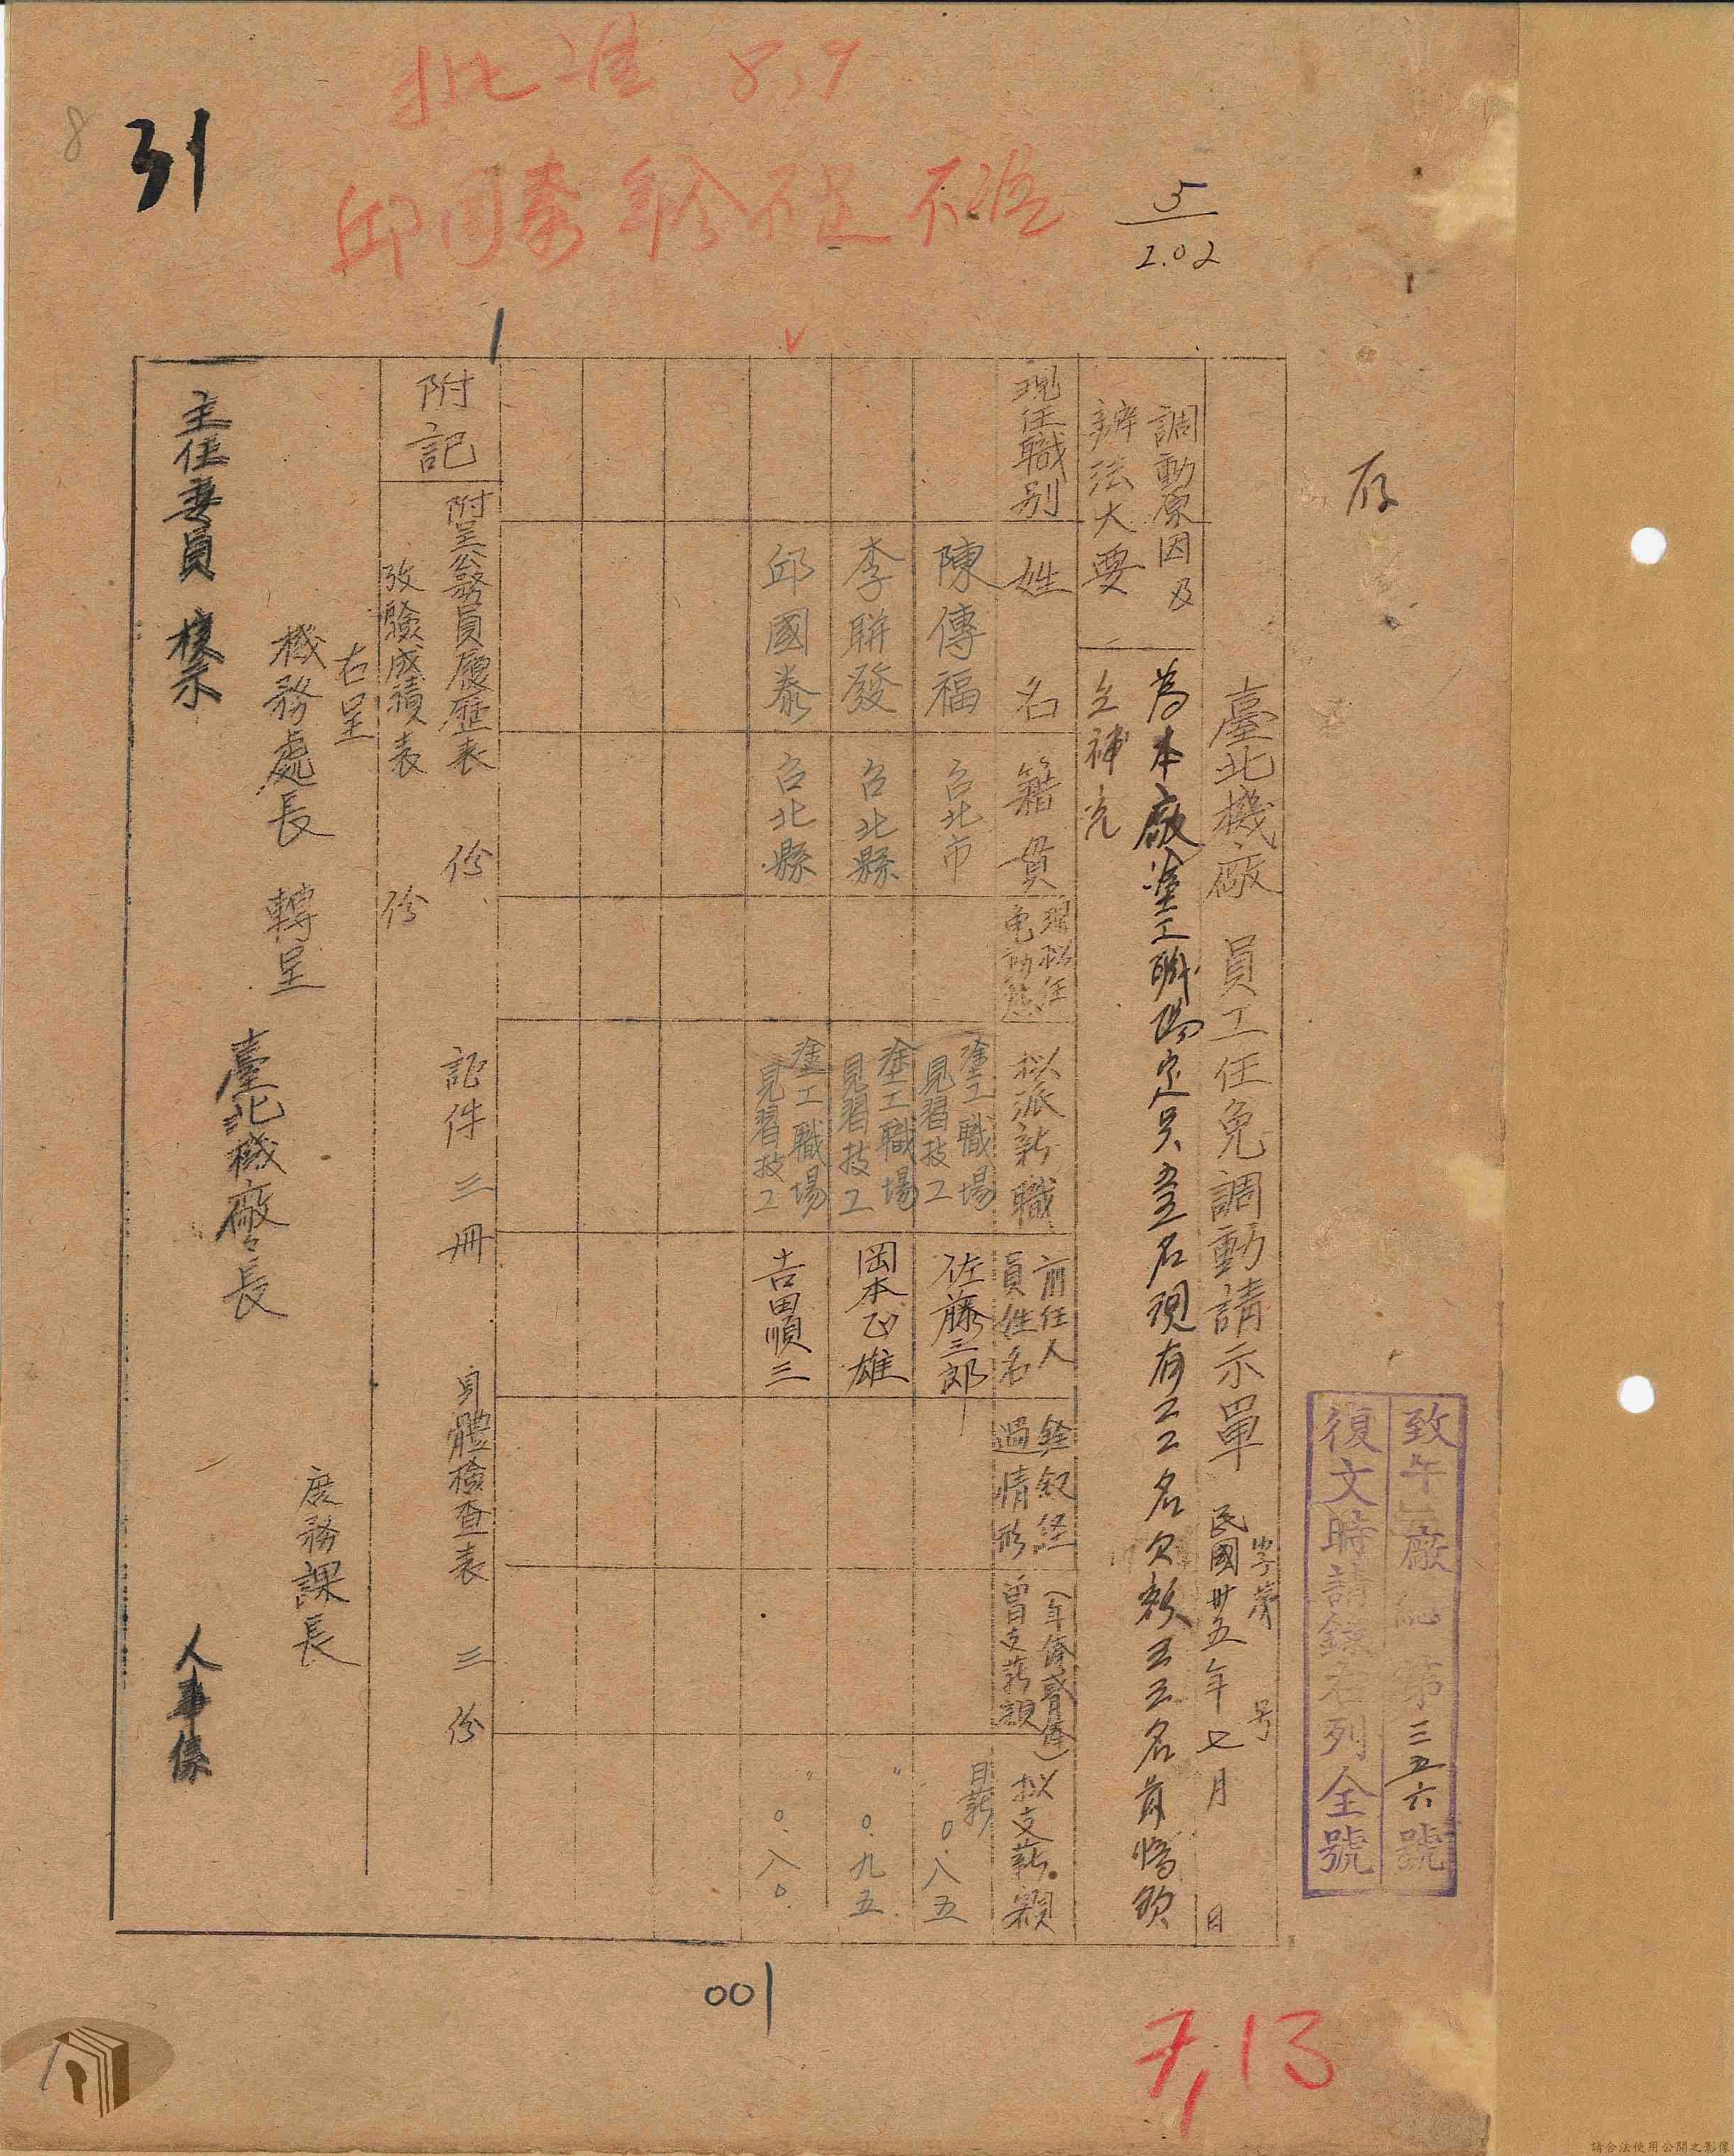 批准 8,9
邱国泰年令不足 不准
31
8
5
2.02
存
致午 廠 第三五六號
復文時請錄右列全號
臺北機廠 員工任免調動請示單
字第 号
民國卅五年七月 日
調動原因及
辦法大要
為本廠塗工職場定員 名現有工工名欠額 名 將
補充
現任職別
姓名
籍貫
現拟任
免動態
拟派新職
前任人
員姓名
銓叙経
過情形
(年俸或月俸)
曾支薪額
拟支薪額
陳傳福
台北市
塗工職場
見習技工
佐藤三郎
日薪
〇.八五
李聯發
台北縣
塗工職場
見習技工
岡本正雄
〃
〇.九五
邱國泰
台北縣
塗工職場
見習技工
吉田順三
〃
〇.八〇
附記
附呈公務員履歷表 份 証件三冊 身體檢查表 三份
攷驗成績表 份
右呈
機務處長 轉呈
主任委員 核示
臺北機廠長
庶務課長
人事係
001
7,13
1
請合法使用公開之影像